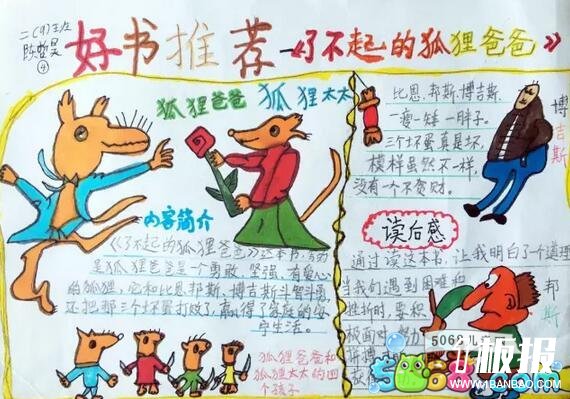 二(9)班
陈哲昊
④
好书推荐—《了不起的狐狸爸爸》
狐狸爸爸
狐狸太太
比恩、邦斯、博吉斯
一瘦一矮一胖子。
三个坏蛋真是坏,
模样虽然不一样,
没有一个不贪财。
博吉斯
内容简介
《了不起的狐狸爸爸》这本书,
是狐狸爸爸是一个勇敢、坚强、有爱心
的狐狸,它和比恩、邦斯、博吉斯斗智斗勇,
还把那三个坏蛋打败了,赢得了家庭的安
宁生活。
狐狸爸爸和
狐狸太太的四
个孩子
读后感
通过读这本书,让我明白了个道理
当我们遇到困难和
挫折时,要积
极面对,努力
邦斯
5068儿
板报
5068.com
WWW.1BANBAO.COM